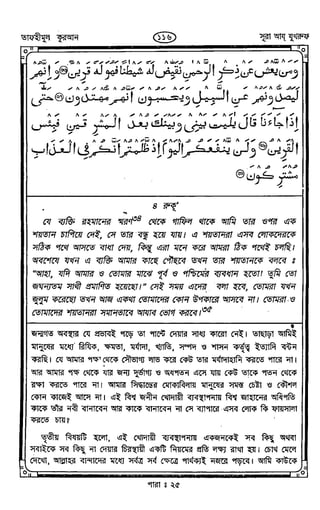 তাফহীমুল কুরআন ১১৬ সূরা আয্ যুখরুফ
وَمَنْ يَّعْشُ عَنْ ذِكْرِ الرَّحْمٰنِ نُقَيِّضْ لَهٗ شَيْطٰنًا فَهُوَ لَهٗ قَرِيْنٌ ۞ وَاِنَّهُمْ
لَيَصُدُّوْنَهُمْ عَنِ السَّبِيْلِ وَيَحْسَبُوْنَ اَنَّهُمْ مُّهْتَدُوْنَ ۞ حَتّٰى
اِذَا جَآءَنَا قَالَ يٰلَيْتَ بَيْنِىْ وَبَيْنَكَ بُعْدَ الْمَشْرِقَيْنِ فَبِئْسَ
الْقَرِيْنُ ۞ وَلَنْ يَّنْفَعَكُمُ الْيَوْمَ اِذْ ظَّلَمْتُمْ اَنَّكُمْ فِى الْعَذَابِ
مُشْتَرِكُوْنَ ۞
৪ রুকূ'
যে ব্যক্তি রহমানের স্মরণ৩৪ থেকে গাফিল থাকে আমি তার ওপর এক
শয়তান চাপিয়ে দেই, সে তার বন্ধু হয়ে যায়। এ শয়তানরা এসব লোকদেরকে
সঠিক পথে আসতে বাধা দেয়, কিন্তু এরা মনে করে আমরা ঠিক পথেই চলছি।
অবশেষে যখন এ ব্যক্তি আমার কাছে পৌঁছবে তখন তার শয়তানকে বলবে ঃ
"আহা, যদি আমার ও তোমার মাঝে পূর্ব ও পশ্চিমের ব্যবধান হতো! তুমি তো
জঘন্যতম সাথী প্রমাণিত হয়েছো।" সেই সময় এদের বলা হবে, তোমরা যখন
জুলুম করেছো তখন আজ একথা তোমাদের কোন উপকারে আসবে না। তোমরা ও
তোমাদের শয়তানরা সমানভাবে আযাব ভোগ করবে।৩৫
জন্মগত অবস্থার যে প্রভাবই পড়ে তা পাল্টে দেয়ার সাধ্য কারো নেই। তাছাড়া আমিই
মানুষের মধ্যে রিযিক, ক্ষমতা, মর্যাদা, খ্যাতি, সম্পদ ও শাসন কর্তৃত্ব ইত্যাদি বণ্টন
করছি। যে আমার পক্ষ থেকে সৌভাগ্য লাভ করে কেউ তার মর্যাদাহানি করতে পারে না।
আর আমার পক্ষ থেকে যার জন্য দুর্ভাগ্য ও অধপতন এসে যায় কেউ তাকে পতন থেকে
রক্ষা করতে পারে না। আমার সিদ্ধান্তের মোকাবিলায় মানুষের সমস্ত চেষ্টা ও কৌশল
কোন কাজেই আসে না। এই বিশ্ব জনীন খোদায়ী ব্যবস্থাপনায় বিশ্ব জাহানের অধিপতি
কাকে তাঁর নবী বানাবেন আর কাকে বানাবেন না সে ব্যাপারে এসব লোক কি ফায়সালা
করতে চায়?
তৃতীয় বিষয়টি হলো, এই খোদায়ী ব্যবস্থাপনায় একজনকেই সব কিছু অথবা
সবাইকে সব কিছু না দেয়ার চিরস্থায়ী একটি নিয়মের প্রতি লক্ষ্য রাখা হয়। চোখ মেলে
দেখো, আল্লাহর বান্দাদের মধ্যে সর্বত্র সর্ব ক্ষেত্রে পার্থক্যই নজরে পড়বে। আমি কাউকে
পারা ঃ ২৫